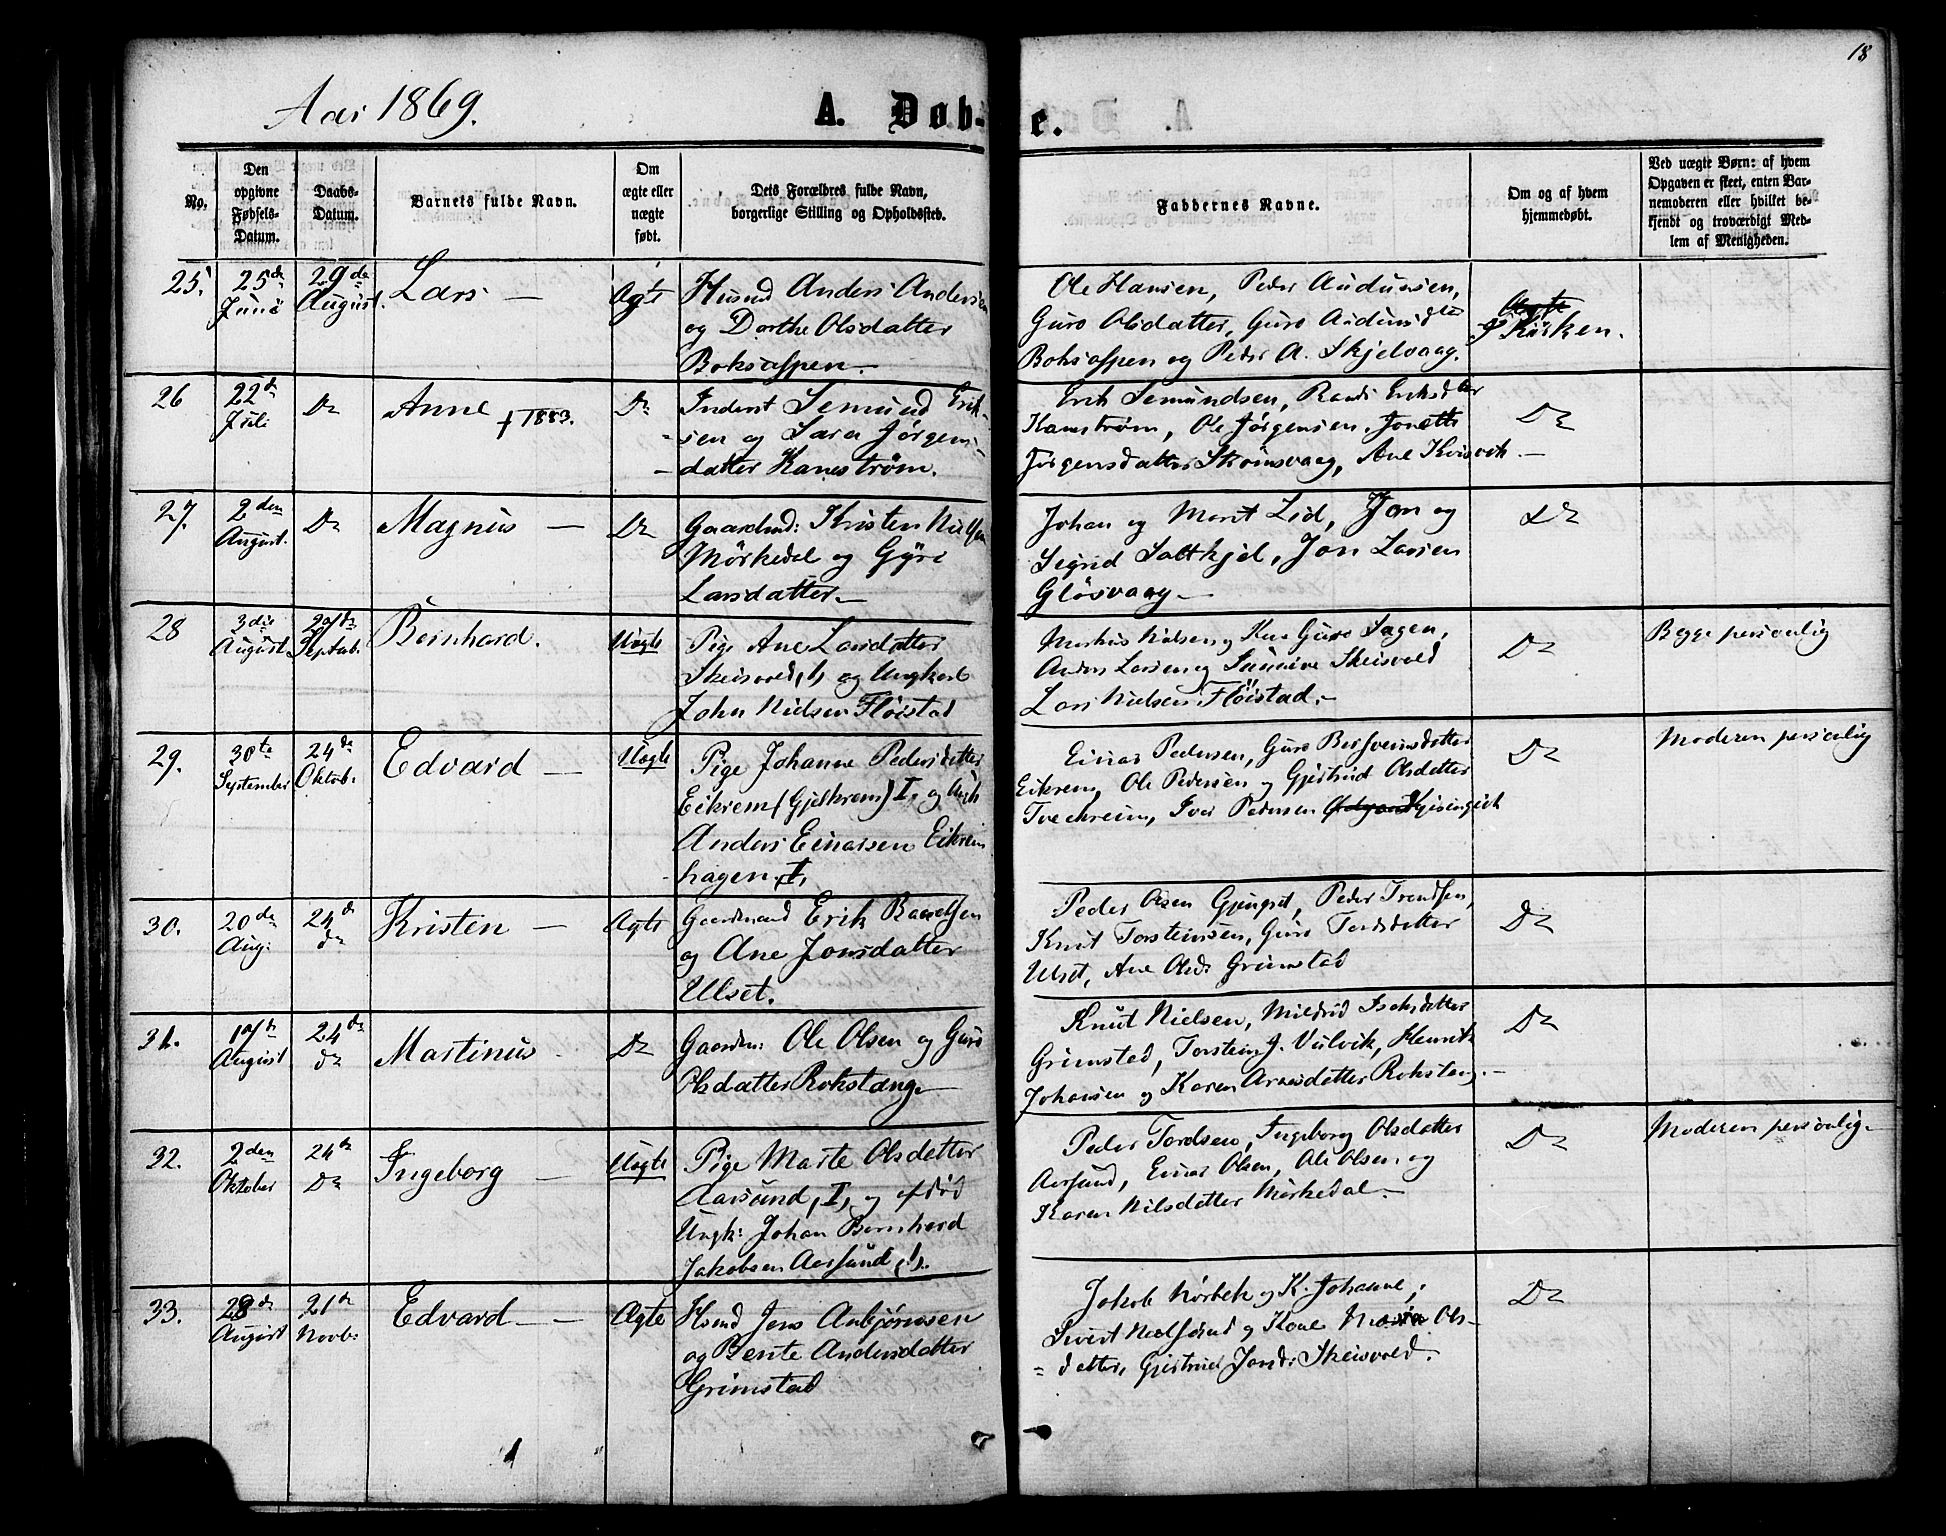 18
Aar 1869.
A. Døb-
e.
No.
Den
opgivne
Fødsels-
Datum.
Daabs-
Datum.
Barnets fulde Navn.
Om
ægte eller
uægte
født.
Dets Forældres fulde Navn,
borgerlige Stilling og Opholdssted.
Faddernes Navne.
Om og af hvem
hjemmedøbt.
Ved uægte Børn: af hvem
Opgaven er skeet, enten Bar-
nemoderen eller hvilket be-
kjendt og troværdigt Med-
lem af Menigheden.
25.
25de
Juni
29de
August.
Lars —
Ægte
Husmd Anders Andersen
og Dorthe Olsdatter
Boksaspen.
Ole Hansen, Peder Audunsen,
Guro Olsdatter, Guro Audunsdtr
Boksaspen og Peder A. Skjelvaag.
Kirken.
26
22de
Juli
Do
Anne †1883.
Do
Inderst Semund Erik-
sen og Sara Jørgens-
datter Kanestrøm.
Erik Semundsen, Randi Eriksdtter
Kanestrøm, Ole Jørgensen, Jonette
Jørgensdatter Skonsvaag, Ane Kvisvik
Do
27.
2den
August.
Do
Magnus —
Do
Gaardmd: Kristen Nielsen
Mørkedal og Gyri
Larsdatter.
Johan og Marit Lid, Jon og
Sigrid Saltkjel, Jon Larsen
Gløsvaag
Do
28
3die
August
Septbr.
Bernhard.
Uægte
Pige Ane Larsdatter
Skeisvold, 1, og Ungkarl
John Nielsen Fløistad
Markus Nielsen og Kone Guro Sagen,
Anders Larsen og Sunnive Skeisvold
Lars Nielsen Fløistad.
Do
Begge personlig
29.
30te
September
24de
Oktob:
Edvard —
Uægte
Pige Johanne Pedersdatter
Eikrem (Gjelkrem) I, og Ungk
Anders Einarsen Eikrem
hagen, I,
Einar Pedersen, Guro Bersveinsdatter
Eikrem, Ole Pedersen og Gjertrud Olsdatter
Tveekreim, Iver Pedersen
Do
Moderen personlig
30.
20de
Aug:
24de
do
Kristen —
Ægte
Gaardmand Erik
og Ane Jonsdatter
Ulset.
Peder Olsen Gjengset, Peder Trondsen,
Knut Torsteinsen, Guro Tordsdatter
Ulset, Ane Olsd: Grimstad
Do
31.
17de
August
24de
do
Martinus
Do
Gaardm: Ole Olsen og Guro
Olsdatter Rokstang
Knut Nielsen, Mildrid Isaksdatter
Grimstad, Torstein J. Vulvik, Henrik
Johansen og Karen Arnesdatter Rokstang.
Do
32.
2den
Oktober
24de
Do
Ingeborg —
Uægte
Pige Marte Olsdatter
Aarsund, I, og afdød
Ungk: Johan Bernhard
Jakobsen Aarsund, 1.
Peder Tordsen, Ingeborg Olsdatter
Aarsund, Einar Olsen, Ole Olsen og
Karen Nilsdatter Mørkedal.
Do
Moderen personlig
33.
28de
August
21de
Novb:
Edvard —
Ægte
Hsmd Jens Anbjørnsen
og Bente Andersdatter
Grimstad
Jakob Nørbek og K. Johanne,
Sivert og Kone Maria Ols-
datter, Gjertrud Jonsd: Skeisvold.
Do